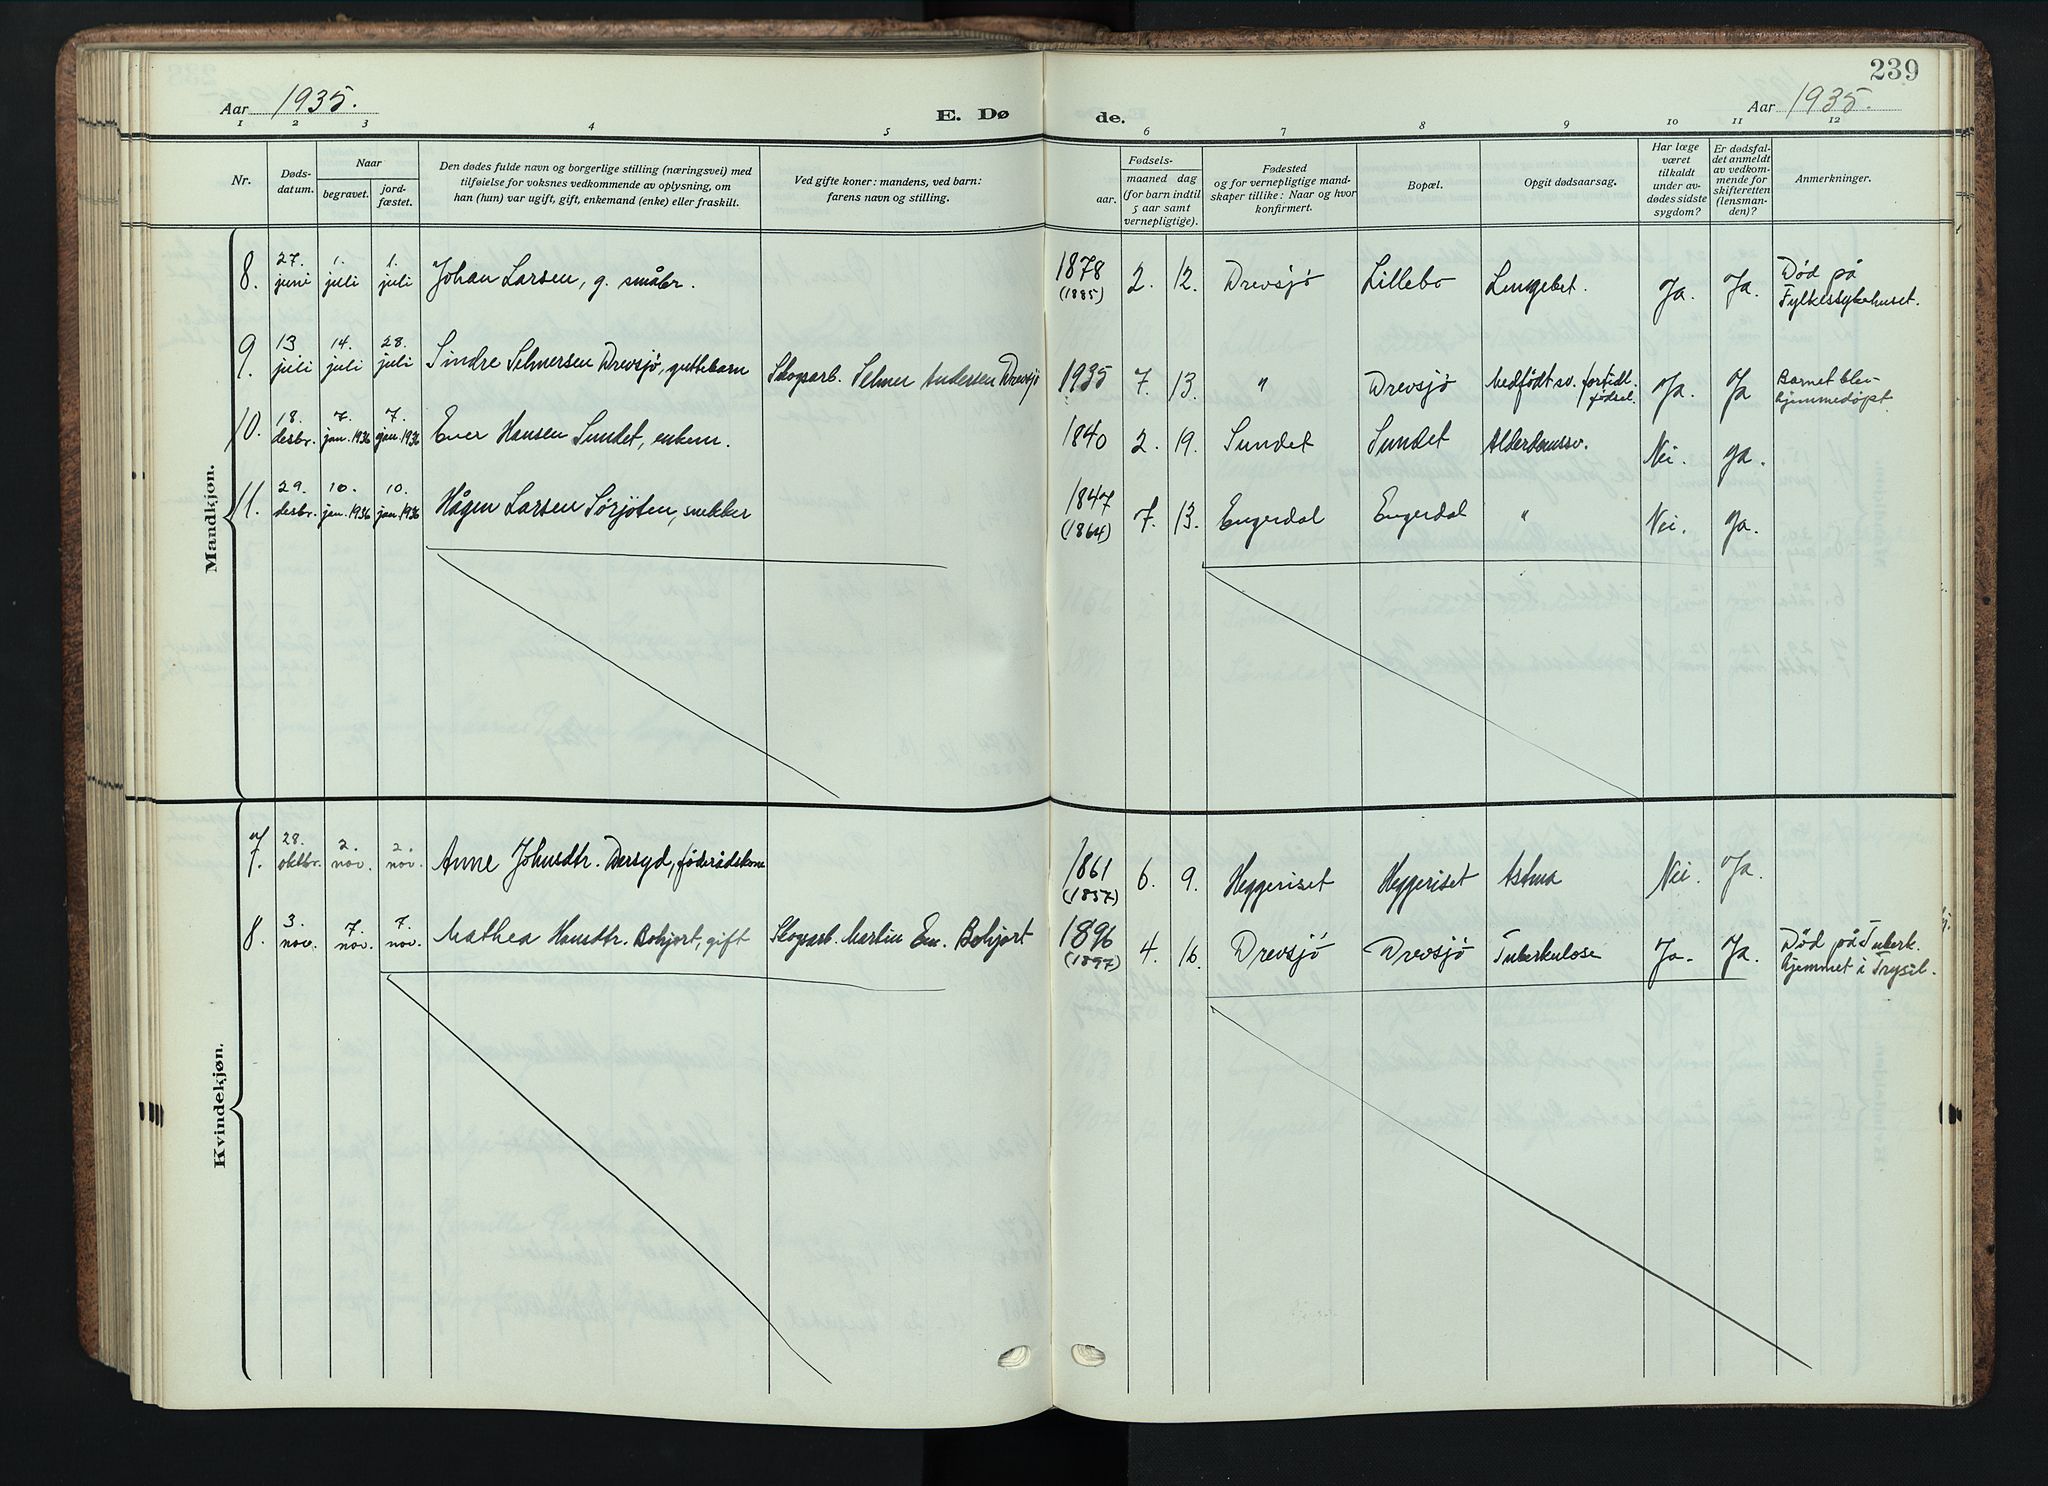 239
Aar 1935.
E. Dø
de.
Aar 1935.
1 2 3 4 5 6 7 8 9 10 11 12
Nr.
Døds-
datum.
Naar
begravet.
jord-
fæstet.
Den dødes fulde navn og borgerlige stilling (næringsvei) med
tilføielse for voksnes vedkommende av oplysning, om
han (hun) var ugift, gift, enkemand (enke) eller fraskilt.
Ved gifte koner: mandens, ved barn:
farens navn og stilling.
Fødsels-
aar.
maaned dag
(for barn indtil
5 aar samt
vernepligtige).
Fødested
og for vernepligtige mand-
skaper tillike: Naar og hvor
konfirmert.
Bopæl.
Opgit dødsaarsag.
Har læge
været
tilkaldt
under av-
dødes sidste
sygdom?
Er dødsfal-
det anmeldt
av vedkom-
mende for
skifteretten
(lensman-
den)?
Anmerkninger.
Mandkjøn.
8. 27. juni 1. juli 1. juli Johan Larsen, g. småbr. 1878 (1885) 2. 12. Drevsjø Lillebo Lungebet. Ja. Ja. Død på
Fylkessykehuset.
9. 13 juli 14. juli 28. juli Sindre Selmersen Drevsjø, guttebarn Skogsarb. Selmer Andersen Drevsjø 1935 7. 13. " Drevsjø Medfødt sv. fortidl. fødsel. Ja. Ja Barnet blev
hjemmedøpt.
10. 18. desbr. 7. jan. 1936 7. jan. 1936 Ever Hansen Sundet, enkem. 1840 2. 19. Sundet Sundet Alderdomssv. Nei. Ja.
11. 29. desbr. 10. jan. 1936 10. jan. 1936 Hågen Larsen Sørjoten, snekker 1847 (1864) 7. 13. Engerdal Engerdal " Nei. Ja.
Kvindekjøn.
7. 28. oktbr. 2. nov. 2. nov. Anne Johnsdtr. føderådskone 1861 (1857) 6. 9. Heggeriset Heggeriset Astma Nei. Ja.
8. 3. nov. 7. nov. 7. nov. Mathea Hansdtr. Bohjort, gift Skogsarb. Martin Em. Bohjort 1896 (1897) 4. 16. Drevsjø Drevsjø Tuberkulose Ja. Ja. Død på Tuberk.
hjemmet i Trysil.